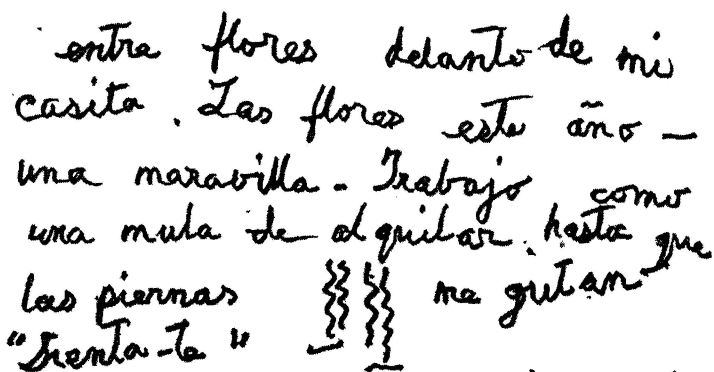 entre flores delante de mi
casita. Las flores este año —
una maravilla. Trabajo como
una mula de alquilar. hasta que
las piernas me gritan
"Sienta-te"